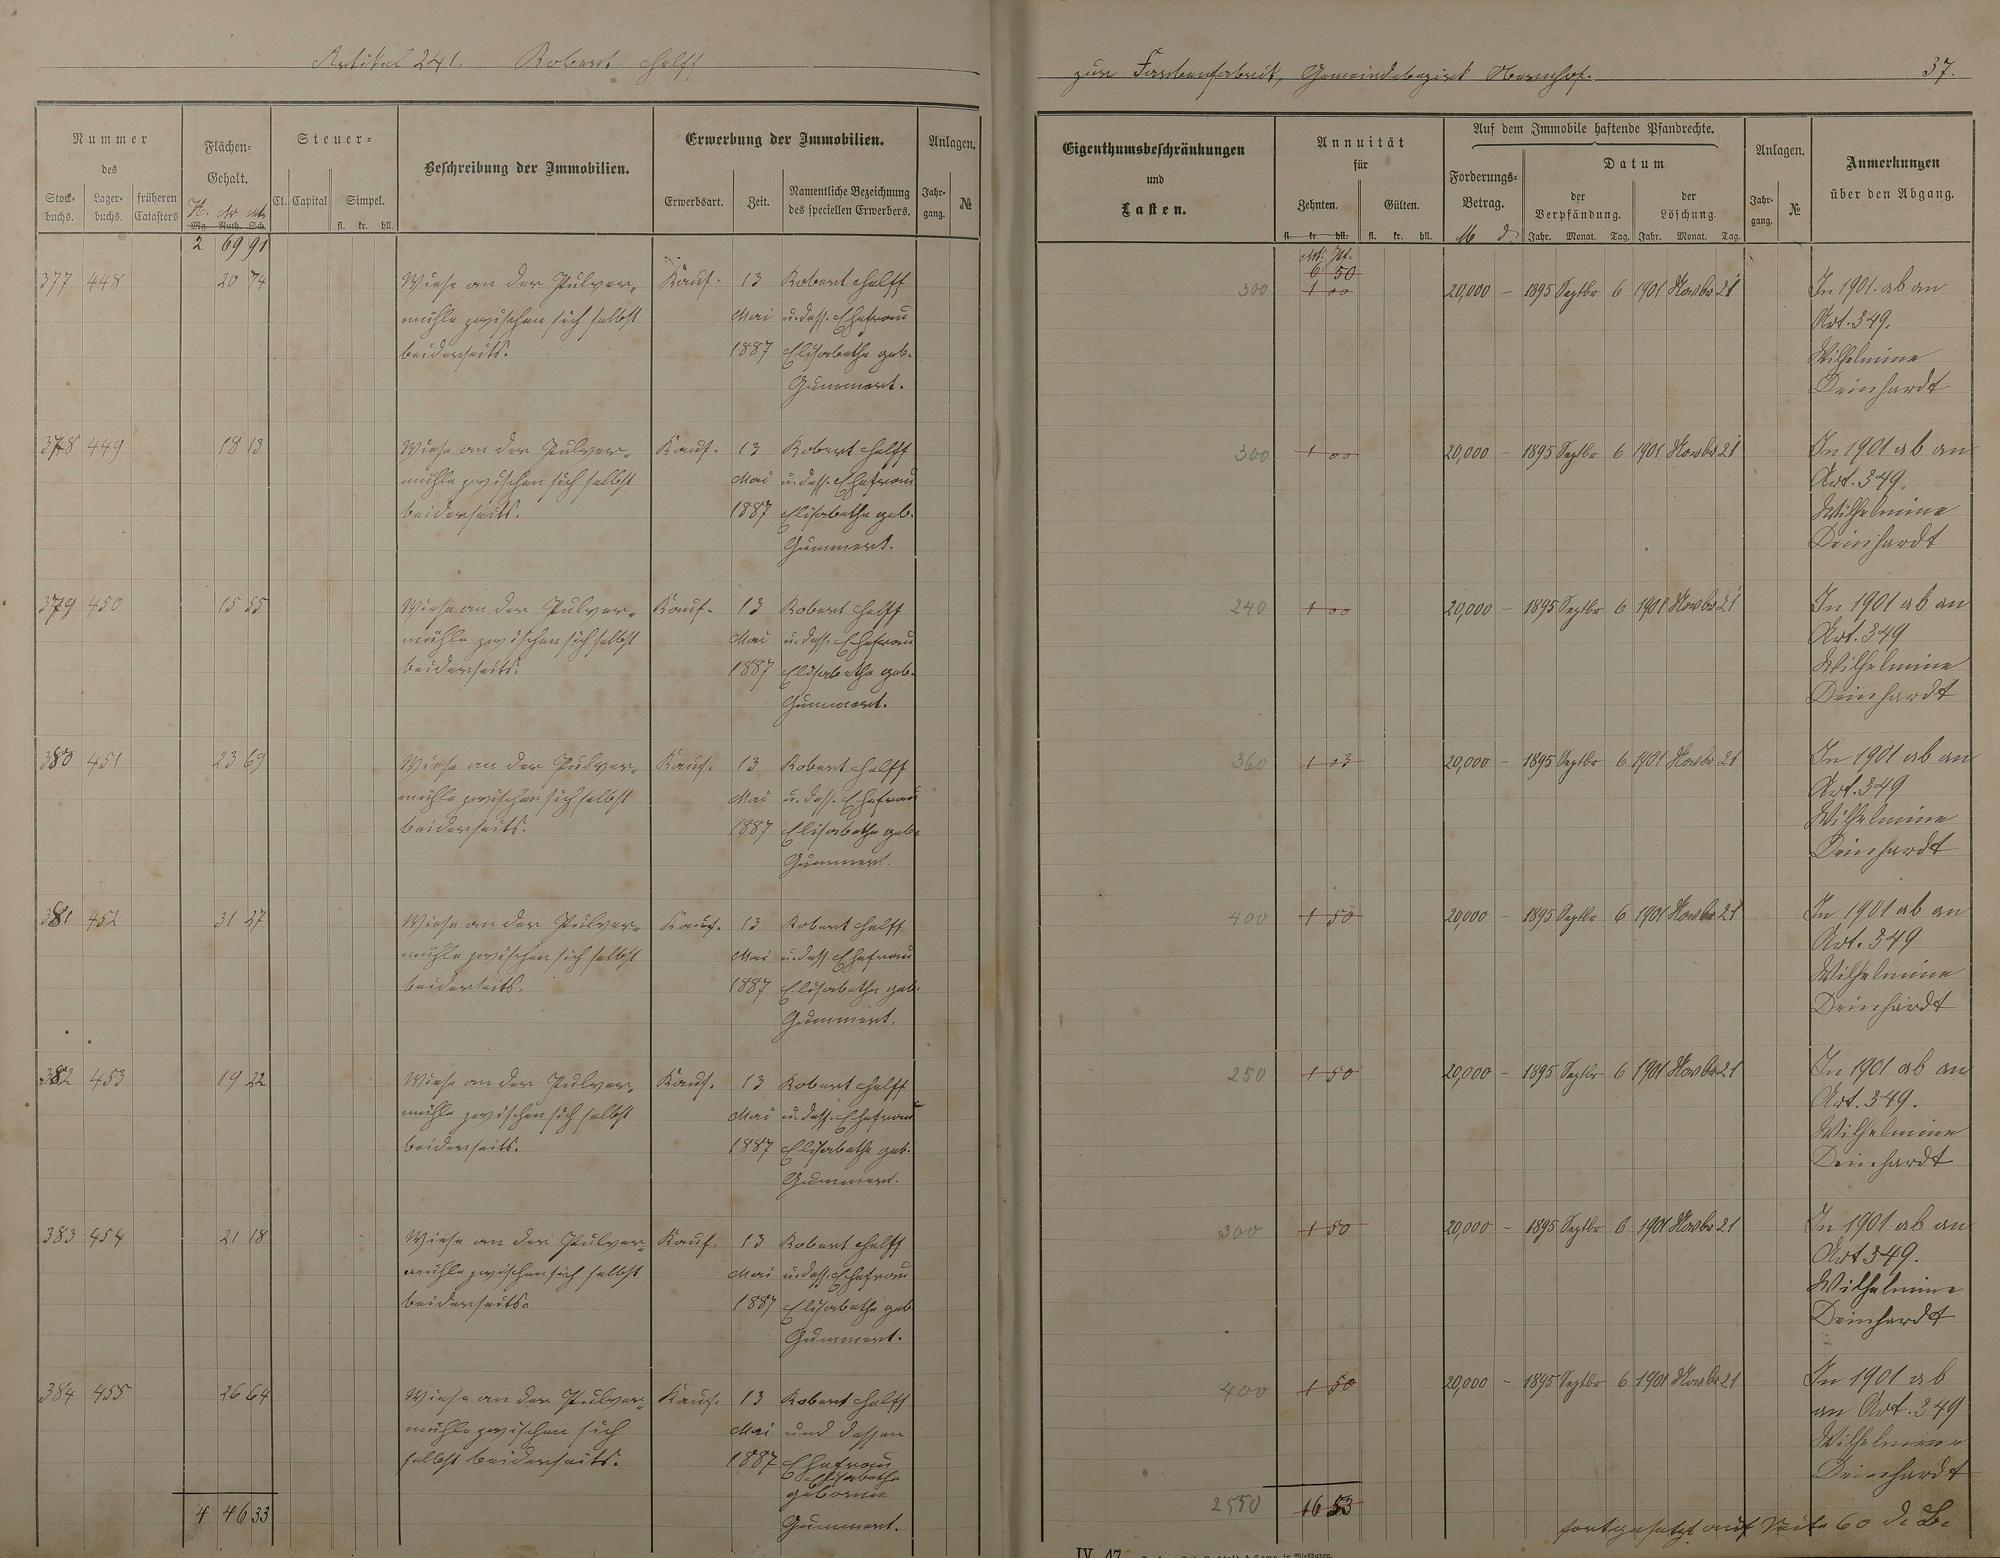 Artikel 241. Robert Helff
zur Farbenfabrik, Gemeindebezirk Obernhof. 37.
Nummer
des
Stock-
buchs.
Lager-
buchs.
früheren
Catasters
Flächen-
Gehalt.
H. Ar Mt.
Mg. Ruth. Sch.
Steuer-
Cl. Capital Simpel.
fl. kr. hll.
Beschreibung der Immobilien.
Erwerbung der Immobilien.
Erwerbsart. Zeit.
Namentliche Bezeichnung
des speciellen Erwerbers.
Anlagen.
Jahr-
gang.
№
Eigenthumsbeschränkungen
und
Lasten.
Annuität
für
Zehnten. Gülten.
fl. kr. hll. fl. kr. hll.
Auf dem Immobile haftende Pfandrechte.
Forderungs-
Betrag.
M
Datum
der
Verpfändung.
der
Löschung.
Jahr. Monat. Tag. Jahr. Monat. Tag.
Anlagen.
Jahr-
gang.
№
Anmerkungen
über den Abgang.
2 69 91
6 50
377 448 20 74 Wiese an der Pulver- Kauf. 13 Robert Helff
mühle zwischen sich selbst Mai u. dess. Ehefrau
beiderseits. 1887 Elisabetha geb.
Gummert.
300 1 00 20,000 – 1895 Septbr 6 1901 Novbr 21 In 1901 ab an
Art. 349.
Wilhelmine
Deinhardt
378 449 18 13 Wiese an der Pulver- Kauf. 13 Robert Helff
mühle zwischen sich selbst Mai u. dess. Ehefrau
beiderseits. 1887 Elisabetha geb.
Gummert.
300 1 00 20,000 – 1895 Septbr 6 1901 Novbr 21 In 1901 ab an
Art. 349.
Wilhelmine
Deinhardt
379 450 15 55 Wiese an der Pulver- Kauf. 13 Robert Helff
mühle zwischen sich selbst Mai u. dess. Ehefrau
beiderseits. 1887 Elisabetha geb.
Gummert.
240 1 00 20,000 – 1895 Septbr 6 1901 Novbr 21 In 1901 ab an
Art. 349
Wilhelmine
Deinhardt
380 451 23 69 Wiese an der Pulver- Kauf. 13 Robert Helff
mühle zwischen sich selbst Mai u. dess. Ehefrau
beiderseits. 1887 Elisabetha geb.
Gummert.
360 1 03 20,000 – 1895 Septbr 6 1901 Novbr 21 In 1901 ab an
Art. 349
Wilhelmine
Deinhardt
381 452 31 27 Wiese an der Pulver- Kauf. 13 Robert Helff
mühle zwischen sich selbst Mai u. dess. Ehefrau
beiderseits. 1887 Elisabetha geb.
Gummert.
400 1 50 20,000 – 1895 Septbr 6 1901 Novbr 21 In 1901 ab an
Art. 349
Wilhelmine
Deinhardt
382 453 19 22 Wiese an der Pulver- Kauf. 13 Robert Helff
mühle zwischen sich selbst Mai u. dess. Ehefrau
beiderseits. 1887 Elisabetha geb.
Gummert.
250 1 50 20,000 – 1895 Septbr 6 1901 Novbr 21 In 1901 ab an
Art. 349.
Wilhelmine
Deinhardt
383 454 21 18 Wiese an der Pulver- Kauf. 13 Robert Helff
mühle zwischen sich selbst Mai u. dess. Ehefrau
beiderseits. 1887 Elisabetha geb.
Gummert.
300 1 50 20,000 – 1895 Septbr 6 1901 Novbr 21 In 1901 ab an
Art 349.
Wilhelmine
Deinhardt
384 455 26 64 Wiese an der Pulver- Kauf. 13 Robert Helff
mühle zwischen sich Mai und dessen
selbst beiderseits. 1887 Ehefrau
Elisabetha
geborene
Gummert.
400 1 50 20,000 – 1895 Septbr 6 1901 Novbr 21 In 1901 ab
an Art. 349
Wilhelmine
Deinhardt
4 46 33
2550 16 53
fortgesetzt auf Seite 60 d. B.
IV. 47.